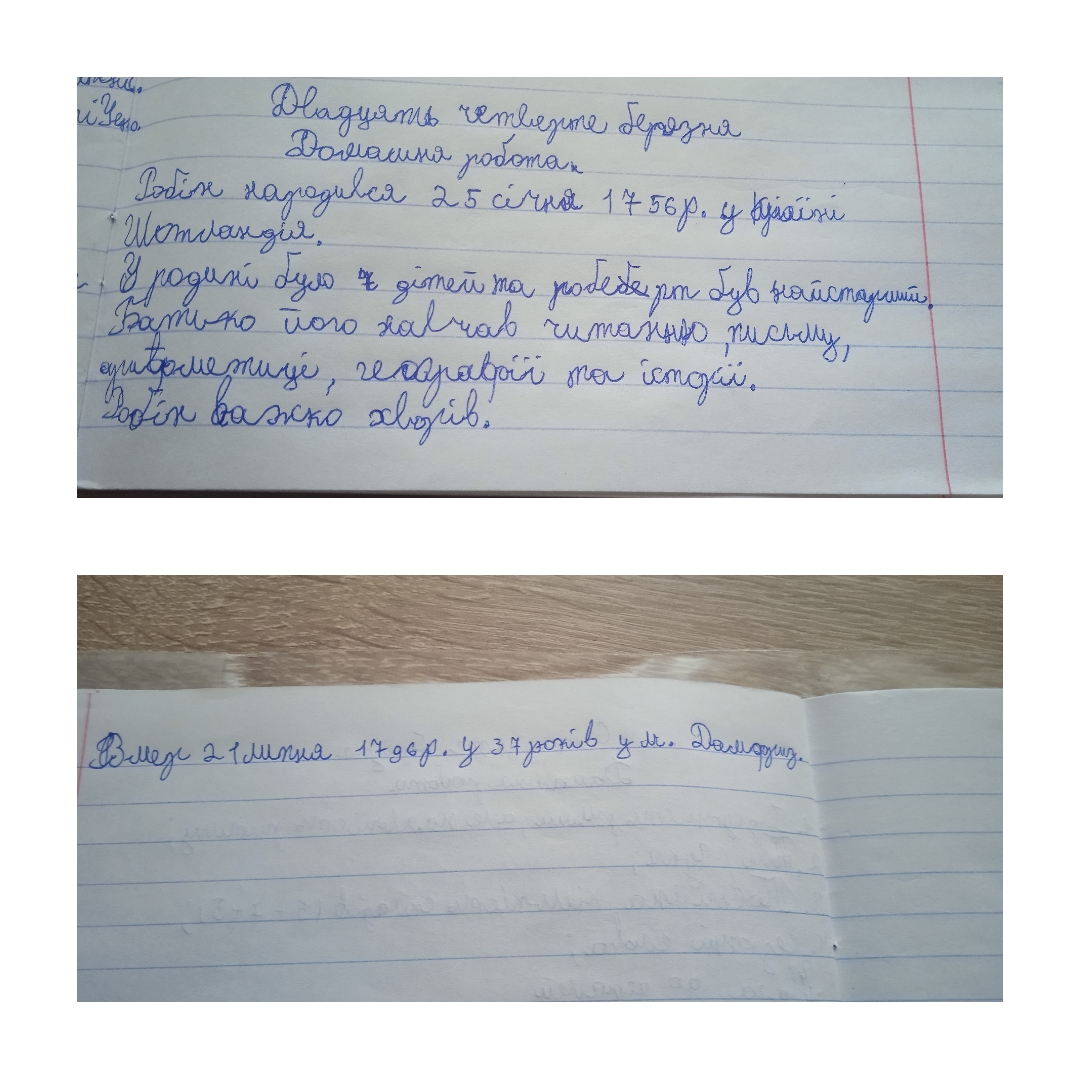 Двадцять четверте березня
Домашня робота.
Робін народився 25 січня 1756р. у країні
Шотландія.
У родині було 7 дітей та робеберт був найстарший.
Батько його навчав читанню, письму,
арифметиці, географії та історії.
Робін важко хворів.
Вмер 21 липня 1796р. у 37 років у м. Дамфриз.